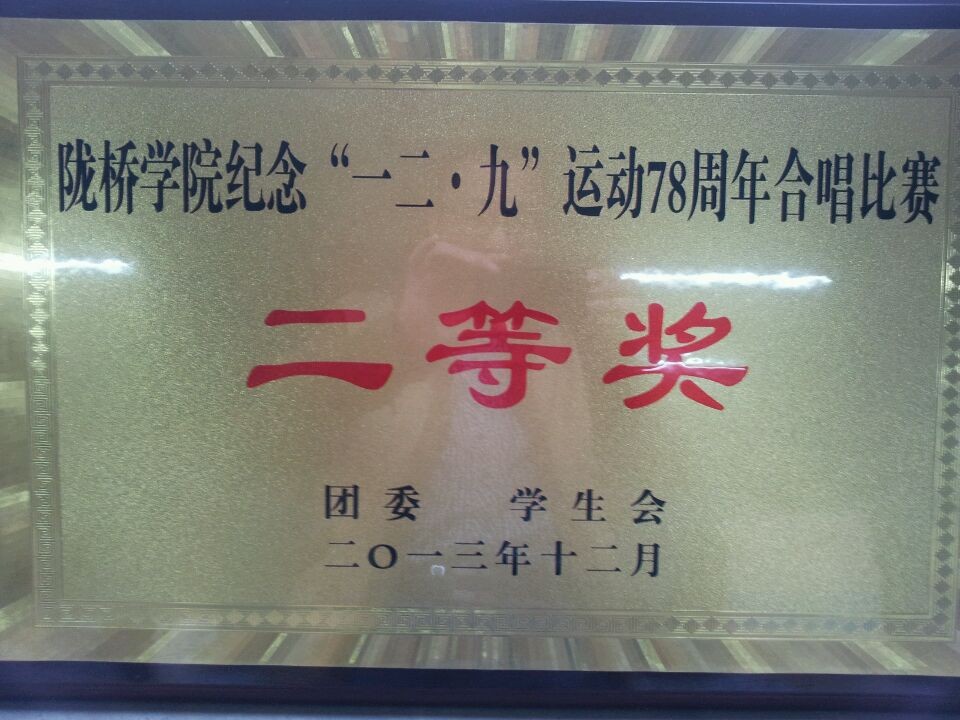 陇桥学院纪念“一二·九”运动78周年合唱比赛
二等奖
团委 学生会
二〇一三年十二月